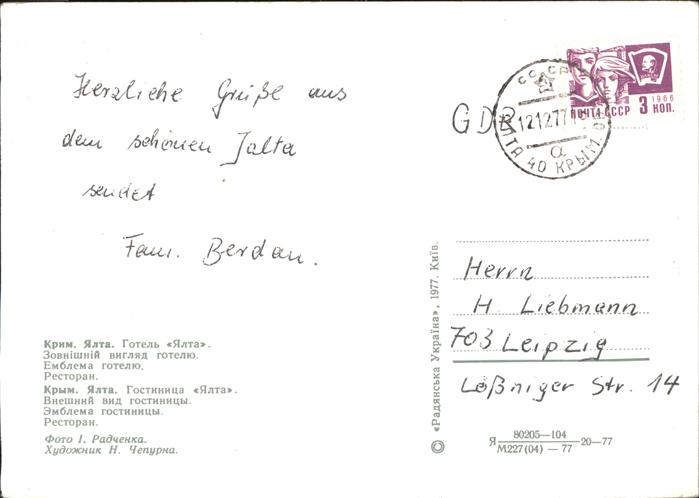 Herzliche Grüße aus
dem schönen Jalta
sendet
Fam. Berdan.
Крим. Ялта. Готель «Ялта».
Зовнішній вигляд готелю.
Емблема готелю.
Ресторан.
Крым. Ялта. Гостиница «Ялта».
Внешний вид гостиницы.
Эмблема гостиницы.
Ресторан.
Фото І. Радченка.
Художник Н. Чепурна.
© «Радянська Україна», 1977. Київ.
GDR
СССР
121277
ЯЛТА 40 КРЫМ.О
α
ПОЧТА СССР 3 КОП.
1966
Herrn
H Liebmann
703 Leipzig
Lößniger Str. 14
Я 80205—104 20—77
М227(04) — 77